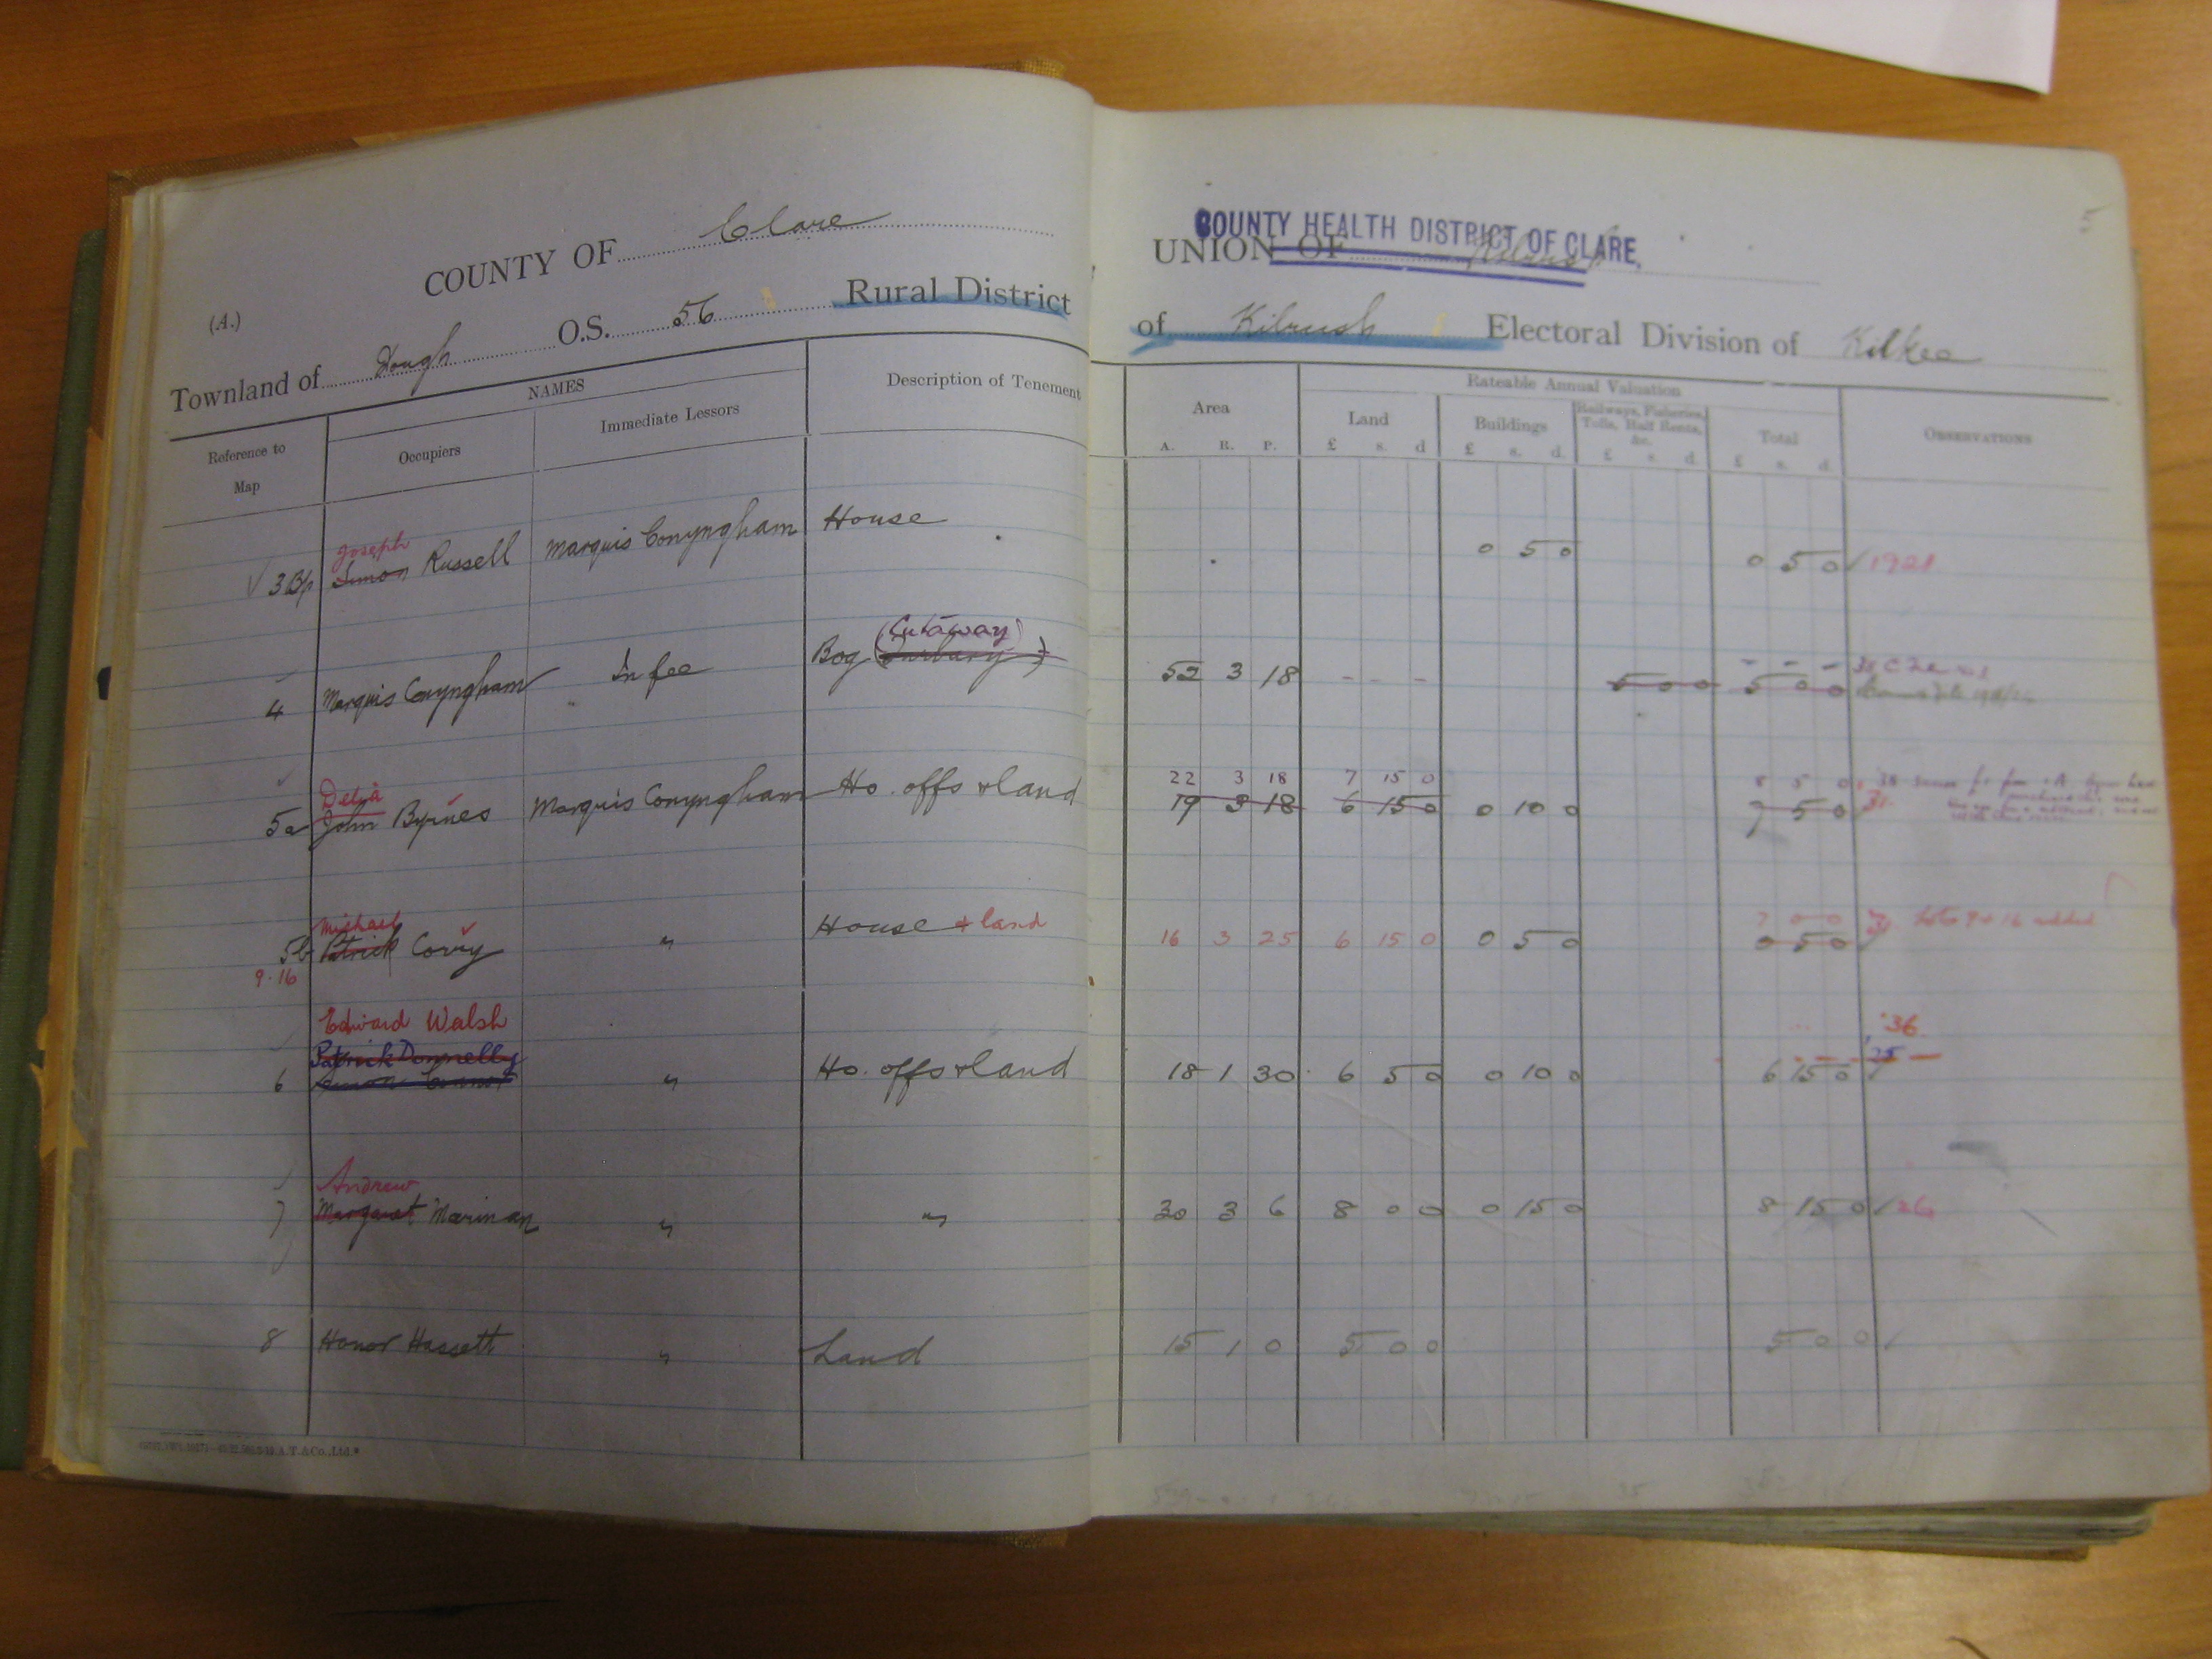 COUNTY OF Clare
COUNTY HEALTH DISTRICT OF CLARE.
UNION OF
5
(A.)
Townland of Dough O.S. 56 Rural District of Kilrush Electoral Division of Kilkee
NAMES
Rateable Annual Valuation
Reference to Map Occupiers Immediate Lessors Description of Tenement Area Land Buildings Railways, Fisheries, Tolls, Half Rents, &c. Total OBSERVATIONS
A. R. P. £ s. d £ s. d. £ s. d. £ s. d.
Joseph
3B/1 Simon Russell Marquis Conyngham House 0 5 0 0 5 0 1921
(Cutaway)
4 Marquis Conyngham In fee Bog (Turbary) 52 3 18 - - - 5 0 0 5 0 0
- - -
Delia 22 3 18 7 15 0 8 5 0
5a John Byrnes Marquis Conyngham Ho. offs & land 19 3 18 6 15 0 0 10 0 7 5 0 31
Michael 7 0 0
5b Patrick Corry " House & land 16 3 25 6 15 0 0 5 0 0 5 0 31 Lots 9 & 16 added
9. 16
Edward Walsh '36
Patrick Donnelly
6 " Ho. offs & land 18 1 30 6 5 0 0 10 0 6 15 0 25
Andrew
7 Margaret Marinan " " 30 3 6 8 0 0 0 15 0 8 15 0 26
8 Honor Hassett " Land 15 1 0 5 0 0 5 0 0